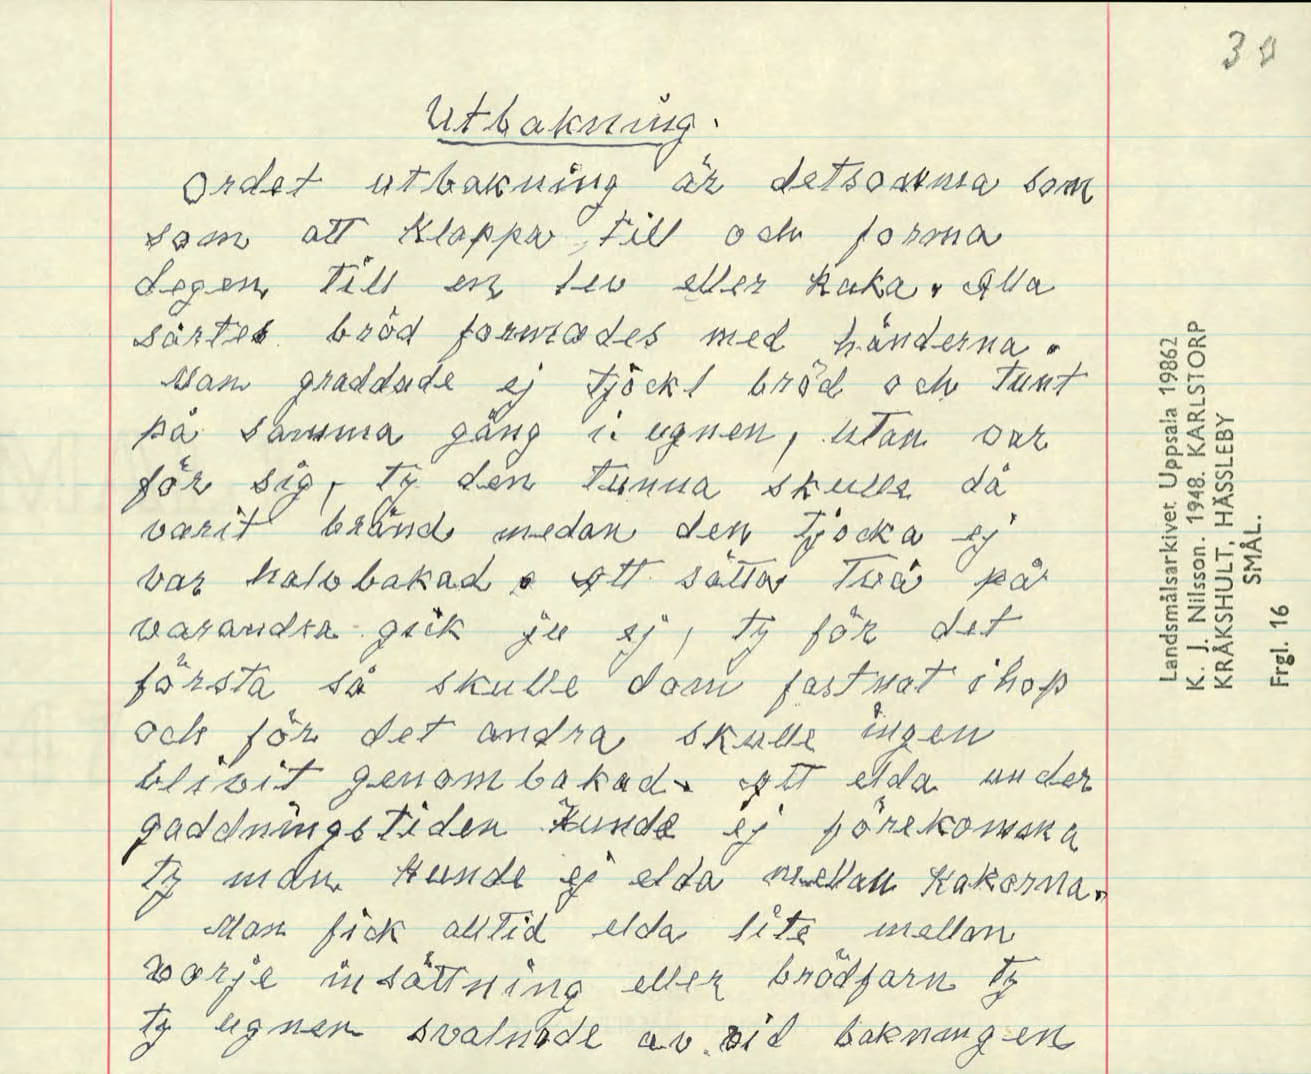 30
Utbakning.
Ordet utbakning är detsamma som
som att klappa till och forma
degen till en lev eller kaka. Alla
sorters bröd formades med händerna.
Man graddade ej tjockt bröd och tunt
på samma gång i ugnen, utan var
för sig, ty den tunna skulle då
varit bränd medan den tjocka ej
var halvbakad. Att sätta två på
varandra gick ju ej, ty för det
första så skulle dom fastnat ihop
och för det andra skulle ingen
blivit genombakad. Att elda under
gaddningstiden kunde ej förekomma
ty man kunde ej elda mellan kakorna.
Man fick alltid elda lite mellan
varje insättning eller brödfarn ty
ty ugnen svalnade av vid bakningen
Landsmålsarkivet Uppsala 19862
K. J. Nilsson. 1948. KARLSTORP
KRÅKSHULT, HÄSSLEBY
SMÅL.
Frgl. 16